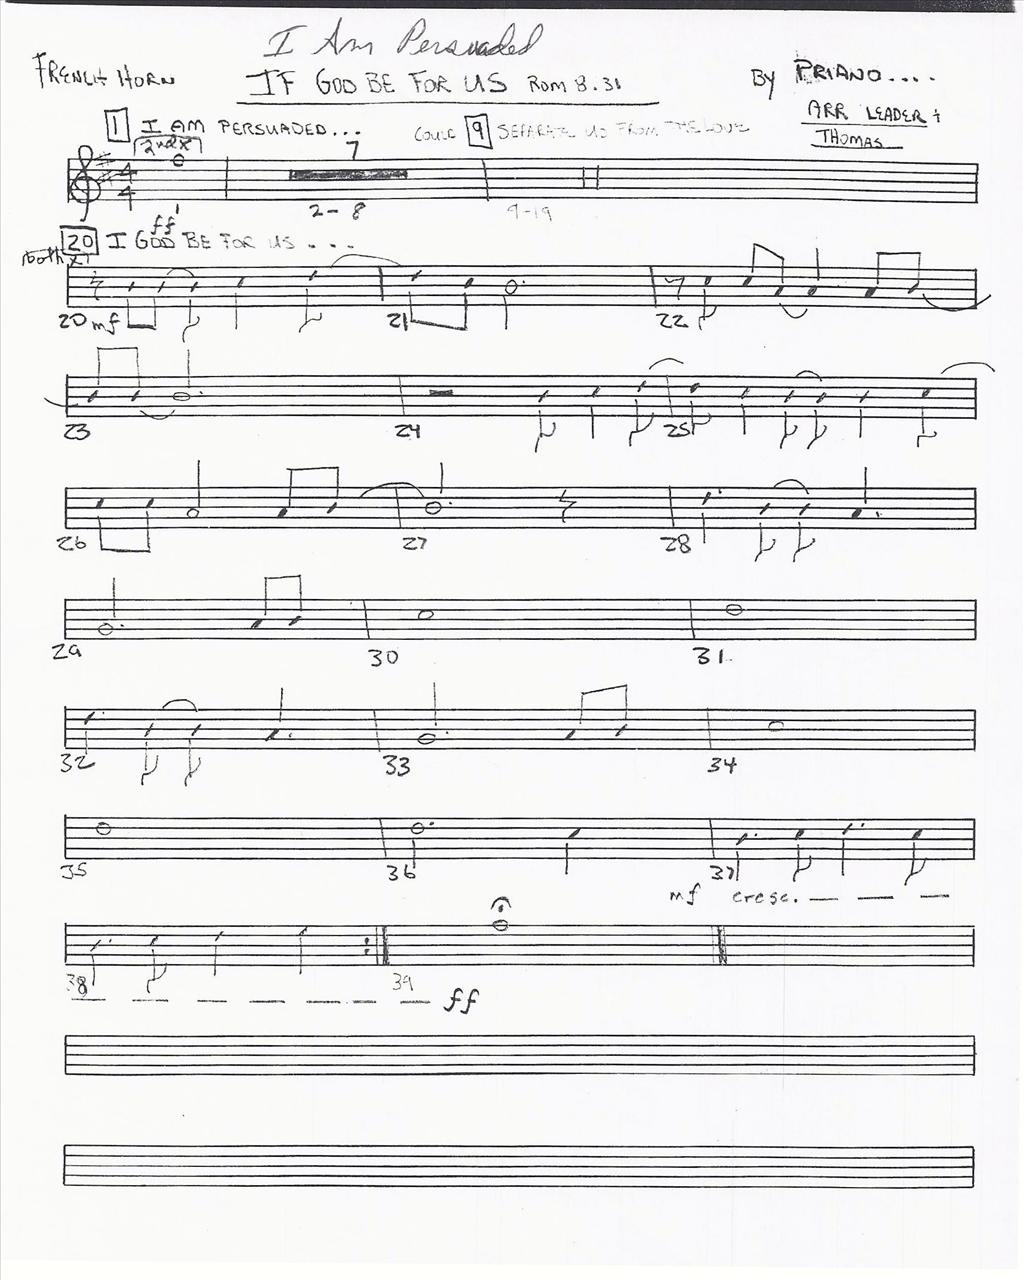 I Am Persuaded
FRENCH HORN
IF GOD BE FOR US ROM 8.31
BY PRIANO....
ARR LEADER +
THOMAS
1 I AM PERSUADED...
COULD 9 SEPARATE US FROM THE LOVE
2nd X
7
4
4
ff
2-8
9-19
20 I GOD BE FOR US ....
both X
20 mf 21 22
23 24 25
26 27 28
29 30 31
32 33 34
35 36 37
mf cresc.
38 39
ff